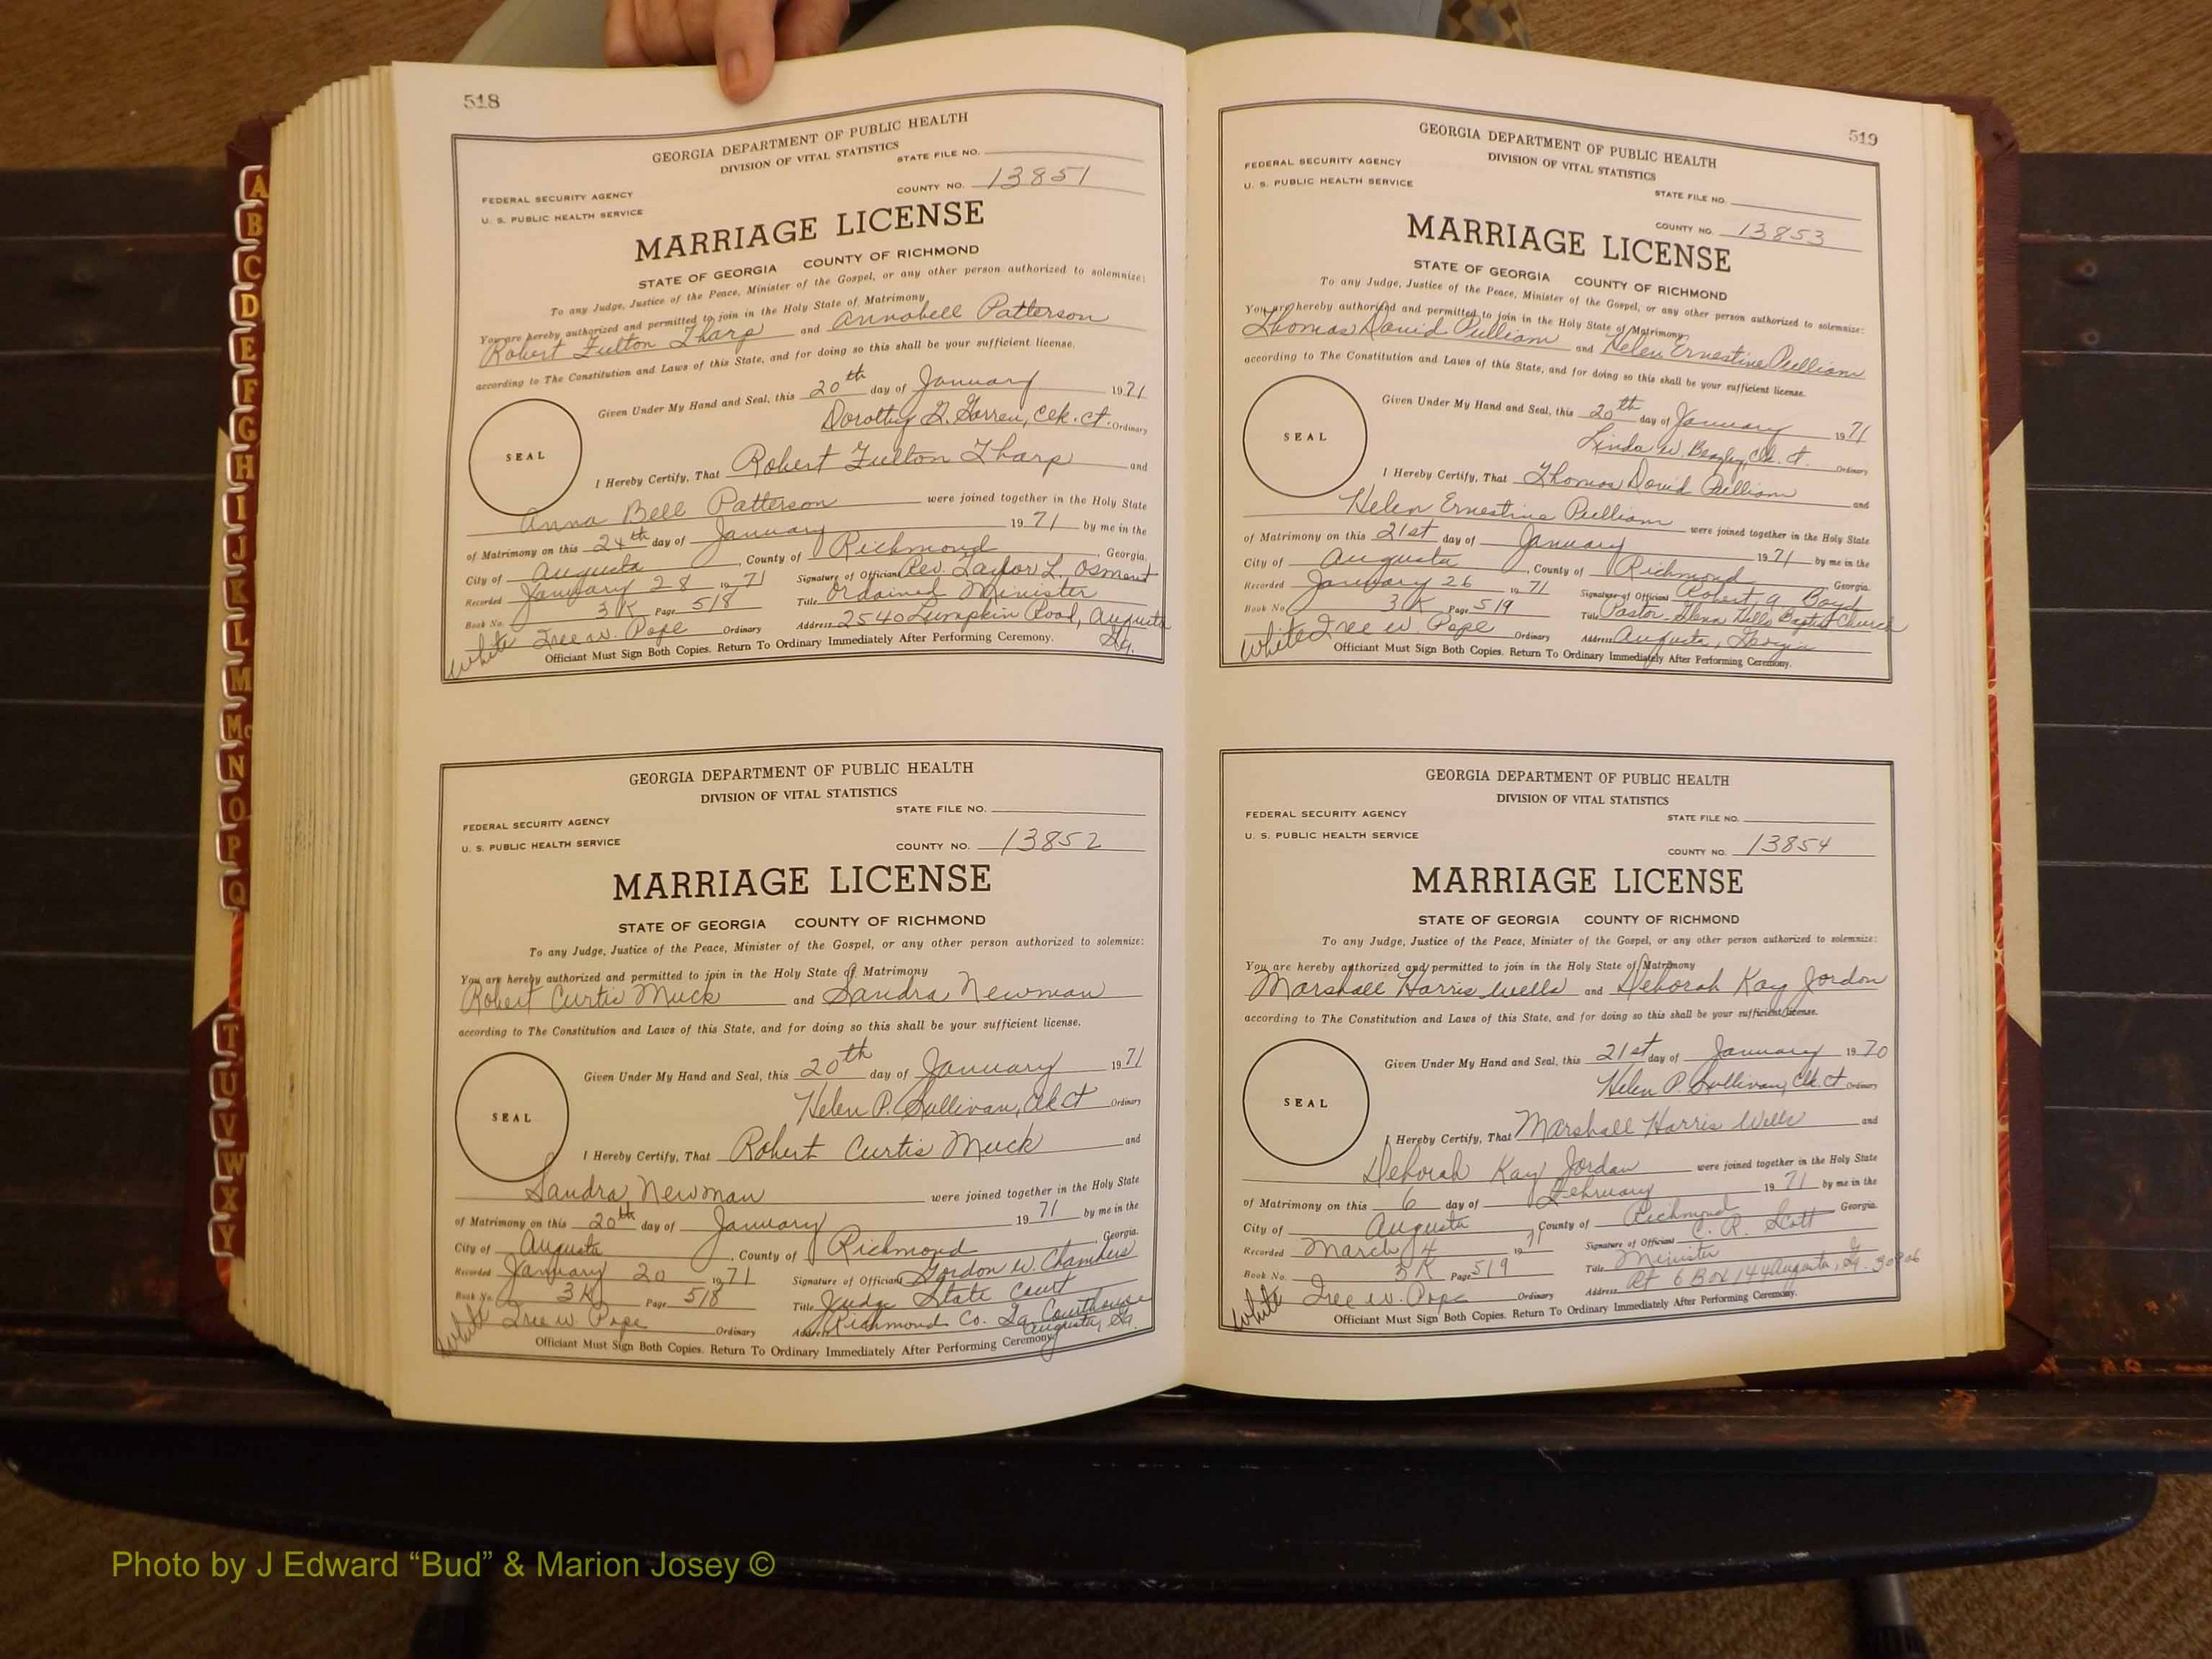 518
GEORGIA DEPARTMENT OF PUBLIC HEALTH
DIVISION OF VITAL STATISTICS
STATE FILE NO.
FEDERAL SECURITY AGENCY
COUNTY NO. 13851
U. S. PUBLIC HEALTH SERVICE
MARRIAGE LICENSE
STATE OF GEORGIA COUNTY OF RICHMOND
To any Judge, Justice of the Peace, Minister of the Gospel, or any other person authorized to solemnize:
You are hereby authorized and permitted to join in the Holy State of Matrimony
Robert Fulton Tharp and Annabell Patterson
according to The Constitution and Laws of this State, and for doing so this shall be your sufficient license.
Given Under My Hand and Seal, this 20th day of January 1971
Dorothy Clk. Ct. Ordinary
SEAL
I Hereby Certify, That Robert Fulton Tharp and
Anna Bell Patterson were joined together in the Holy State
of Matrimony on this 24th day of January 1971 by me in the
City of Augusta, County of Richmond, Georgia.
Recorded January 28 1971 Signature of Official Rev. Taylor L. Osment
Book No. 3K Page 518 Title Ordained Minister
White Ordinary Address 2540 Lumpkin Road, Augusta Ga.
Officiant Must Sign Both Copies. Return To Ordinary Immediately After Performing Ceremony.
GEORGIA DEPARTMENT OF PUBLIC HEALTH
DIVISION OF VITAL STATISTICS
STATE FILE NO.
FEDERAL SECURITY AGENCY
U. S. PUBLIC HEALTH SERVICE
COUNTY NO. 13852
MARRIAGE LICENSE
STATE OF GEORGIA COUNTY OF RICHMOND
To any Judge, Justice of the Peace, Minister of the Gospel, or any other person authorized to solemnize:
You are hereby authorized and permitted to join in the Holy State of Matrimony
Robert Curtis Muck and Sandra Newman
according to The Constitution and Laws of this State, and for doing so this shall be your sufficient license.
Given Under My Hand and Seal, this 20th day of January 1971
Helen P. Sullivan, Clk Ct Ordinary
SEAL
I Hereby Certify, That Robert Curtis Muck and
Sandra Newman were joined together in the Holy State
of Matrimony on this 20th day of January 1971 by me in the
City of Augusta, County of Richmond, Georgia.
Recorded January 20 1971 Signature of Official Gordon W. Chambers
Book No. 3K Page 518 Title Judge State Court
White Ordinary Address Richmond Co. Ga. Courthouse Augusta, Ga.
Officiant Must Sign Both Copies. Return To Ordinary Immediately After Performing Ceremony.
519
GEORGIA DEPARTMENT OF PUBLIC HEALTH
DIVISION OF VITAL STATISTICS
FEDERAL SECURITY AGENCY
U. S. PUBLIC HEALTH SERVICE
STATE FILE NO.
COUNTY NO. 13853
MARRIAGE LICENSE
STATE OF GEORGIA COUNTY OF RICHMOND
To any Judge, Justice of the Peace, Minister of the Gospel, or any other person authorized to solemnize:
You are hereby authorized and permitted to join in the Holy State of Matrimony
Thomas David Pulliam and Helen Ernestine Pulliam
according to The Constitution and Laws of this State, and for doing so this shall be your sufficient license.
Given Under My Hand and Seal, this 20th day of January 1971
Linda W. Beazley, Clk. Ct. Ordinary
SEAL
I Hereby Certify, That Thomas David Pulliam and
Helen Ernestine Pulliam were joined together in the Holy State
of Matrimony on this 21st day of January 1971 by me in the
City of Augusta, County of Richmond Georgia
Recorded January 26 1971 Signature of Official Robert G Boyd
Book No. 3K Page 519 Title Pastor - Glenn Hills Baptist Church
White Ordinary Address Augusta, Georgia
Officiant Must Sign Both Copies. Return To Ordinary Immediately After Performing Ceremony.
GEORGIA DEPARTMENT OF PUBLIC HEALTH
DIVISION OF VITAL STATISTICS
FEDERAL SECURITY AGENCY
STATE FILE NO.
U. S. PUBLIC HEALTH SERVICE
COUNTY NO. 13854
MARRIAGE LICENSE
STATE OF GEORGIA COUNTY OF RICHMOND
To any Judge, Justice of the Peace, Minister of the Gospel, or any other person authorized to solemnize:
You are hereby authorized and permitted to join in the Holy State of Matrimony
Marshall Harris Wells and Deborah Kay Jordon
according to The Constitution and Laws of this State, and for doing so this shall be your sufficient license.
Given Under My Hand and Seal, this 21st day of January 1970
Helen P. Sullivan, Clk Ct Ordinary
SEAL
I Hereby Certify, That Marshall Harris Wells and
Deborah Kay Jordan were joined together in the Holy State
of Matrimony on this 6 day of February 1971 by me in the
City of Augusta, County of Richmond Georgia
Recorded March 4 1971 Signature of Official C. R. Scott
Book No. 3K Page 519 Title Minister
White Ordinary Address Rt 6 Box 144 Augusta, Ga.
Officiant Must Sign Both Copies. Return To Ordinary Immediately After Performing Ceremony.
A
B
C
D
E
F
G
H
I
J
K
L
M
Mc
N
O
P
Q
T
U
V
W
X
Y
Photo by J Edward “Bud” & Marion Josey ©